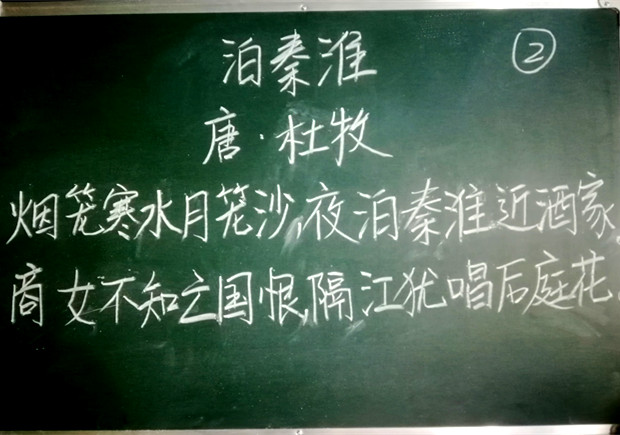 泊秦淮
②
唐·杜牧
烟笼寒水月笼沙,夜泊秦淮近酒家。
商女不知亡国恨,隔江犹唱后庭花。